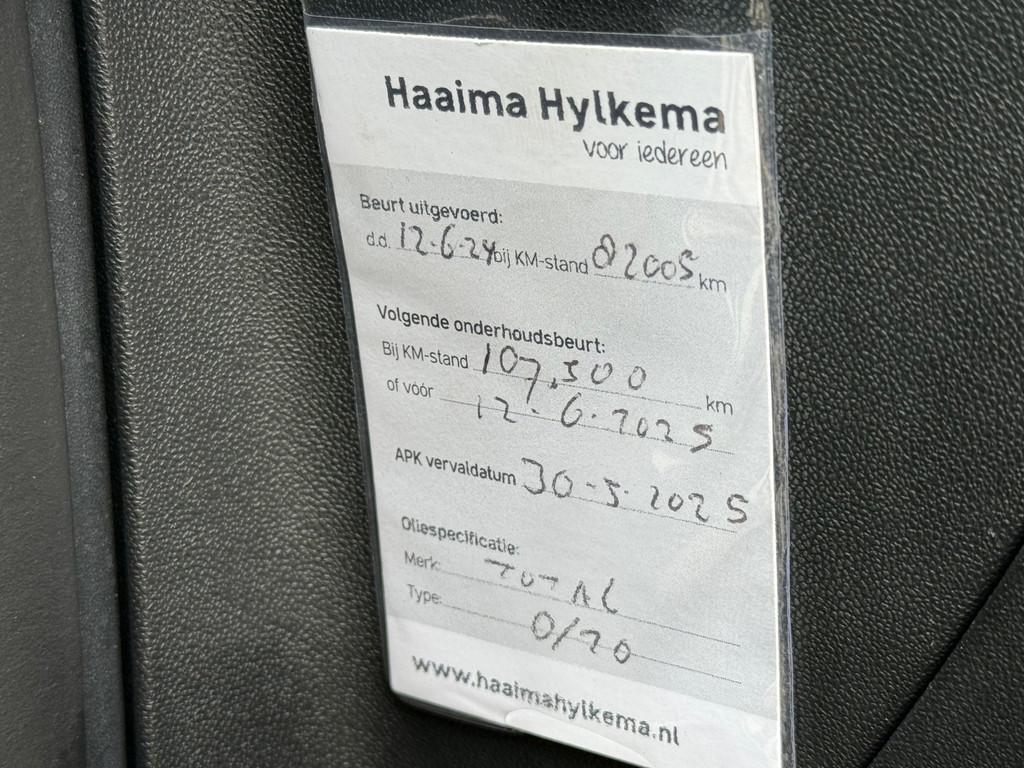 Haaima Hylkema
voor iedereen
Beurt uitgevoerd:
d.d. 12-6-24 bij KM-stand 82005 km
Volgende onderhoudsbeurt:
Bij KM-stand 107.500 km
of vóór 12-6-2025
APK vervaldatum 30-5-2025
Oliespecificatie:
Merk: TOTAL
Type: 0/20
www.haaimahylkema.nl